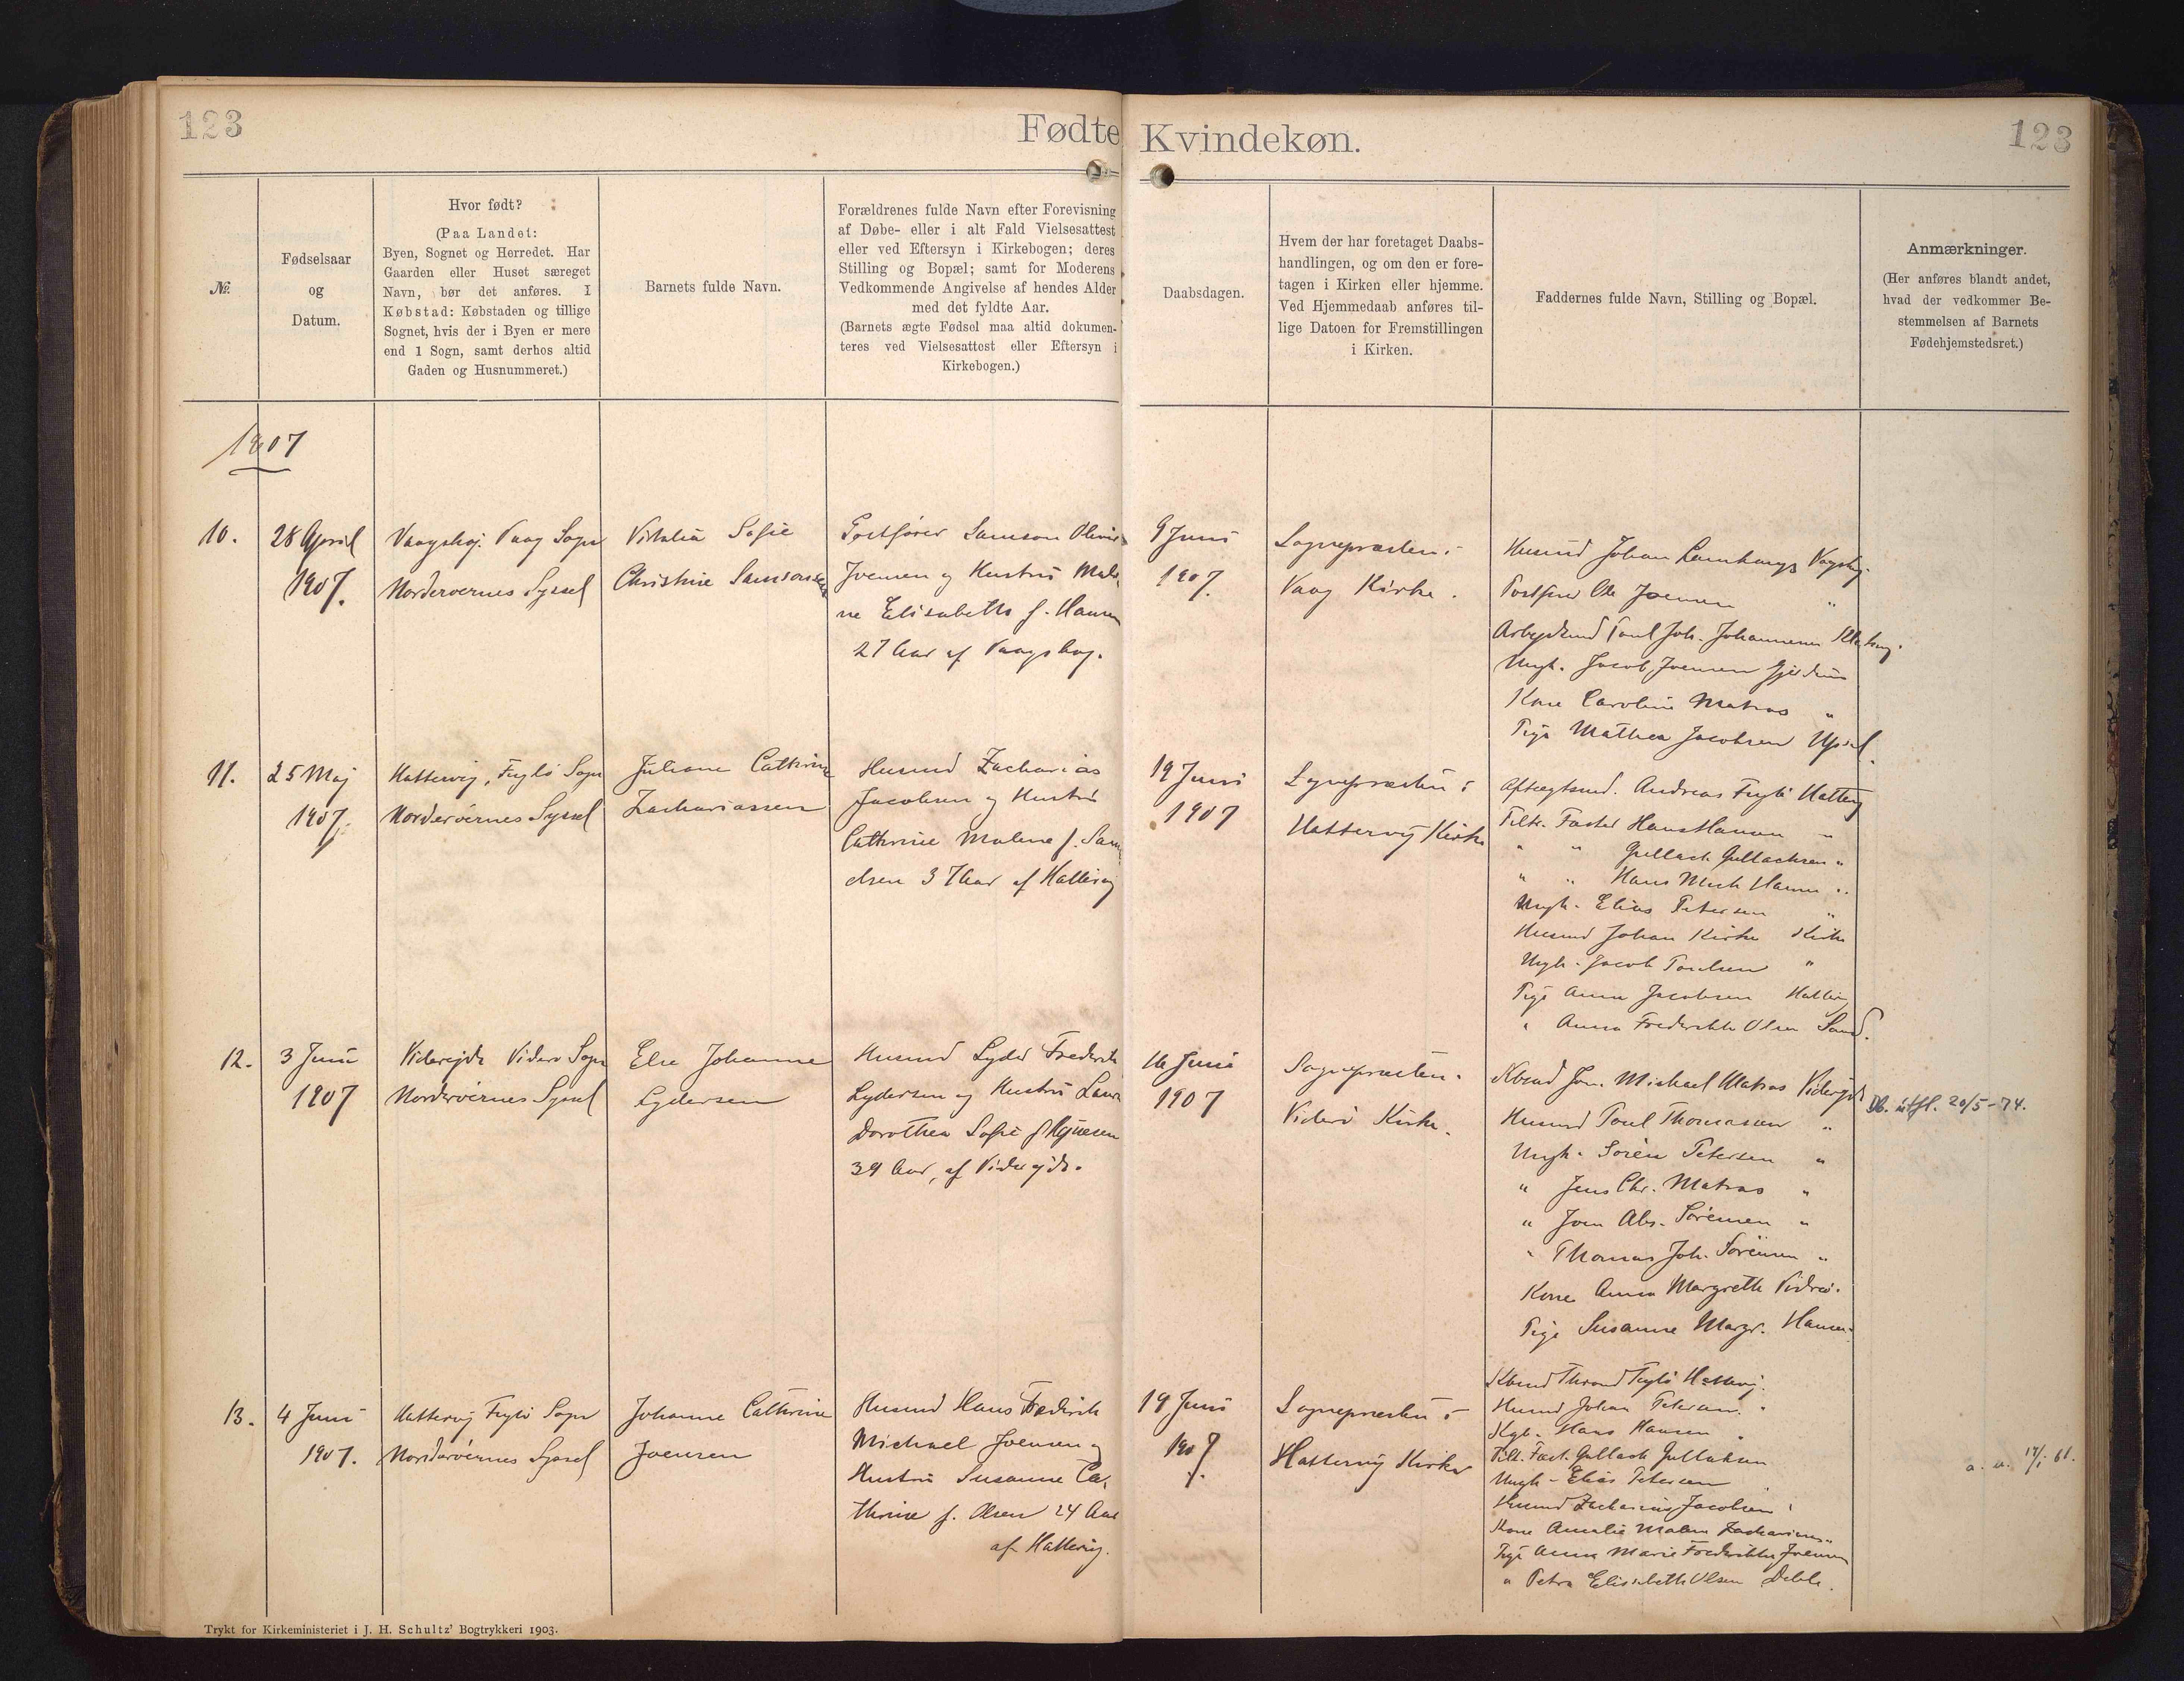 123
Fødte Kvindekøn.
123
№.
Fødselsaar
og
Datum.
Hvor født?
(Paa Landet:
Byen, Sognet og Herredet. Har
Gaarden eller Huset særeget
Navn, bør det anføres. I
Købstad: Købstaden og tillige
Sognet, hvis der i Byen er mere
end 1 Sogn, samt derhos altid
Gaden og Husnummeret.)
Barnets fulde Navn.
Forældrenes fulde Navn efter Forevisning
af Døbe- eller i alt Fald Vielsesattest
eller ved Eftersyn i Kirkebogen; deres
Stilling og Bopæl; samt for Moderens
Vedkommende Angivelse af hendes Alder
med det fyldte Aar.
(Barnets ægte Fødsel maa altid dokumen-
teres ved Vielsesattest eller Eftersyn i
Kirkebogen.)
Daabsdagen.
Hvem der har foretaget Daabs-
handlingen, og om den er fore-
tagen i Kirken eller hjemme.
Ved Hjemmedaab anføres til-
lige Datoen for Fremstillingen
i Kirken.
Faddernes fulde Navn, Stilling og Bopæl.
Anmærkninger.
(Her anføres blandt andet,
hvad der vedkommer Be-
stemmelsen af Barnets
Fødehjemstedsret.)
1907
10.
28 April
1907.
Vaagshøj. Vaag Sogn
Norderøernes Syssel
Sofie
Christine Samsonsen
Samson
Joensen og Hustru
ne Elisabeth f. Hansen
27 Aar af Vaagshøj.
9 Juni
1907.
Sognepræsten i
Vaag Kirke.
Husmd Johan
Joensen "
Poul Joh. Johannesen
Ungk. Jacob Joensen
Kone Caroline Matras "
Pige Mathea Jacobsen
11.
25 Maj
1907.
Hattervig, Fuglø Sogn
Norderøernes Syssel
Juliane Cathrine
Zachariassen
Husmd Zacharias
Jacobsen og Hustru
Cathrine Malene f. Sam
elsen 37 Aar af Hattervig
19 Juni
1907
Sognepræsten i
Hattervig Kirke
Aftægtsmd. Andreas Fuglø Hatterv
Hans Hansen "
" " Gullack Gullacksen "
" " Hans Mich Hansen "
Ungk. Elias Petersen "
Husmd Johan Kirke Kirke
Ungk. Jacob Poulsen "
Pige Anna Jacobsen Hatterv
" Anna Frederikke Olsen Sand.
12.
3 Juni
1907
Viderejde Viderø Sogn
Norderøernes Syssel
Else Johanne
Lydersen
Husmd Lyder Frederik
Lydersen og Hustru
Dorothea Sofie f.
39 Aar, af Viderejde.
16 Juni
1907
Sognepræsten i
Viderø Kirke.
Kbmd Michael Matras Viderejd
Husmd Poul Thomassen "
Ungk. Sören Petersen "
" Jens Chr. Matras "
" Sörensen "
" Thomas Joh. Sörensen "
Kone Anna Margrethe Viderø.
Pige Susanne Margr. Hansen
Db. útfl. 20/5-74.
13.
4 Juni
1907.
Hattervig Fuglø Sogn
Norderøernes Syssel
Johanne Cathrine
Joensen
Husmd Hans Frederik
Michael Joensen og
Hustru Susanne Ca-
thrine f. Olsen 24 Aar
af Hattervig.
19 Juni
1907.
Sognepræsten i
Hattervig Kirke
Kbmd Thrond Fuglø Hattervig.
Husmd Johan Petersen "
Hans Hansen "
Gullack Gullacksen
Ungk. Elias Petersen
Husmd Zacharias Jacobsen
Kone Amalie Malene Zachariasen
Pige Anna Marie Frederikke Joensen
" Petra Elisabeth Olsen
a. u. 17/1 61.
Trykt for Kirkeministeriet i J. H. Schultz' Bogtrykkeri 1903.